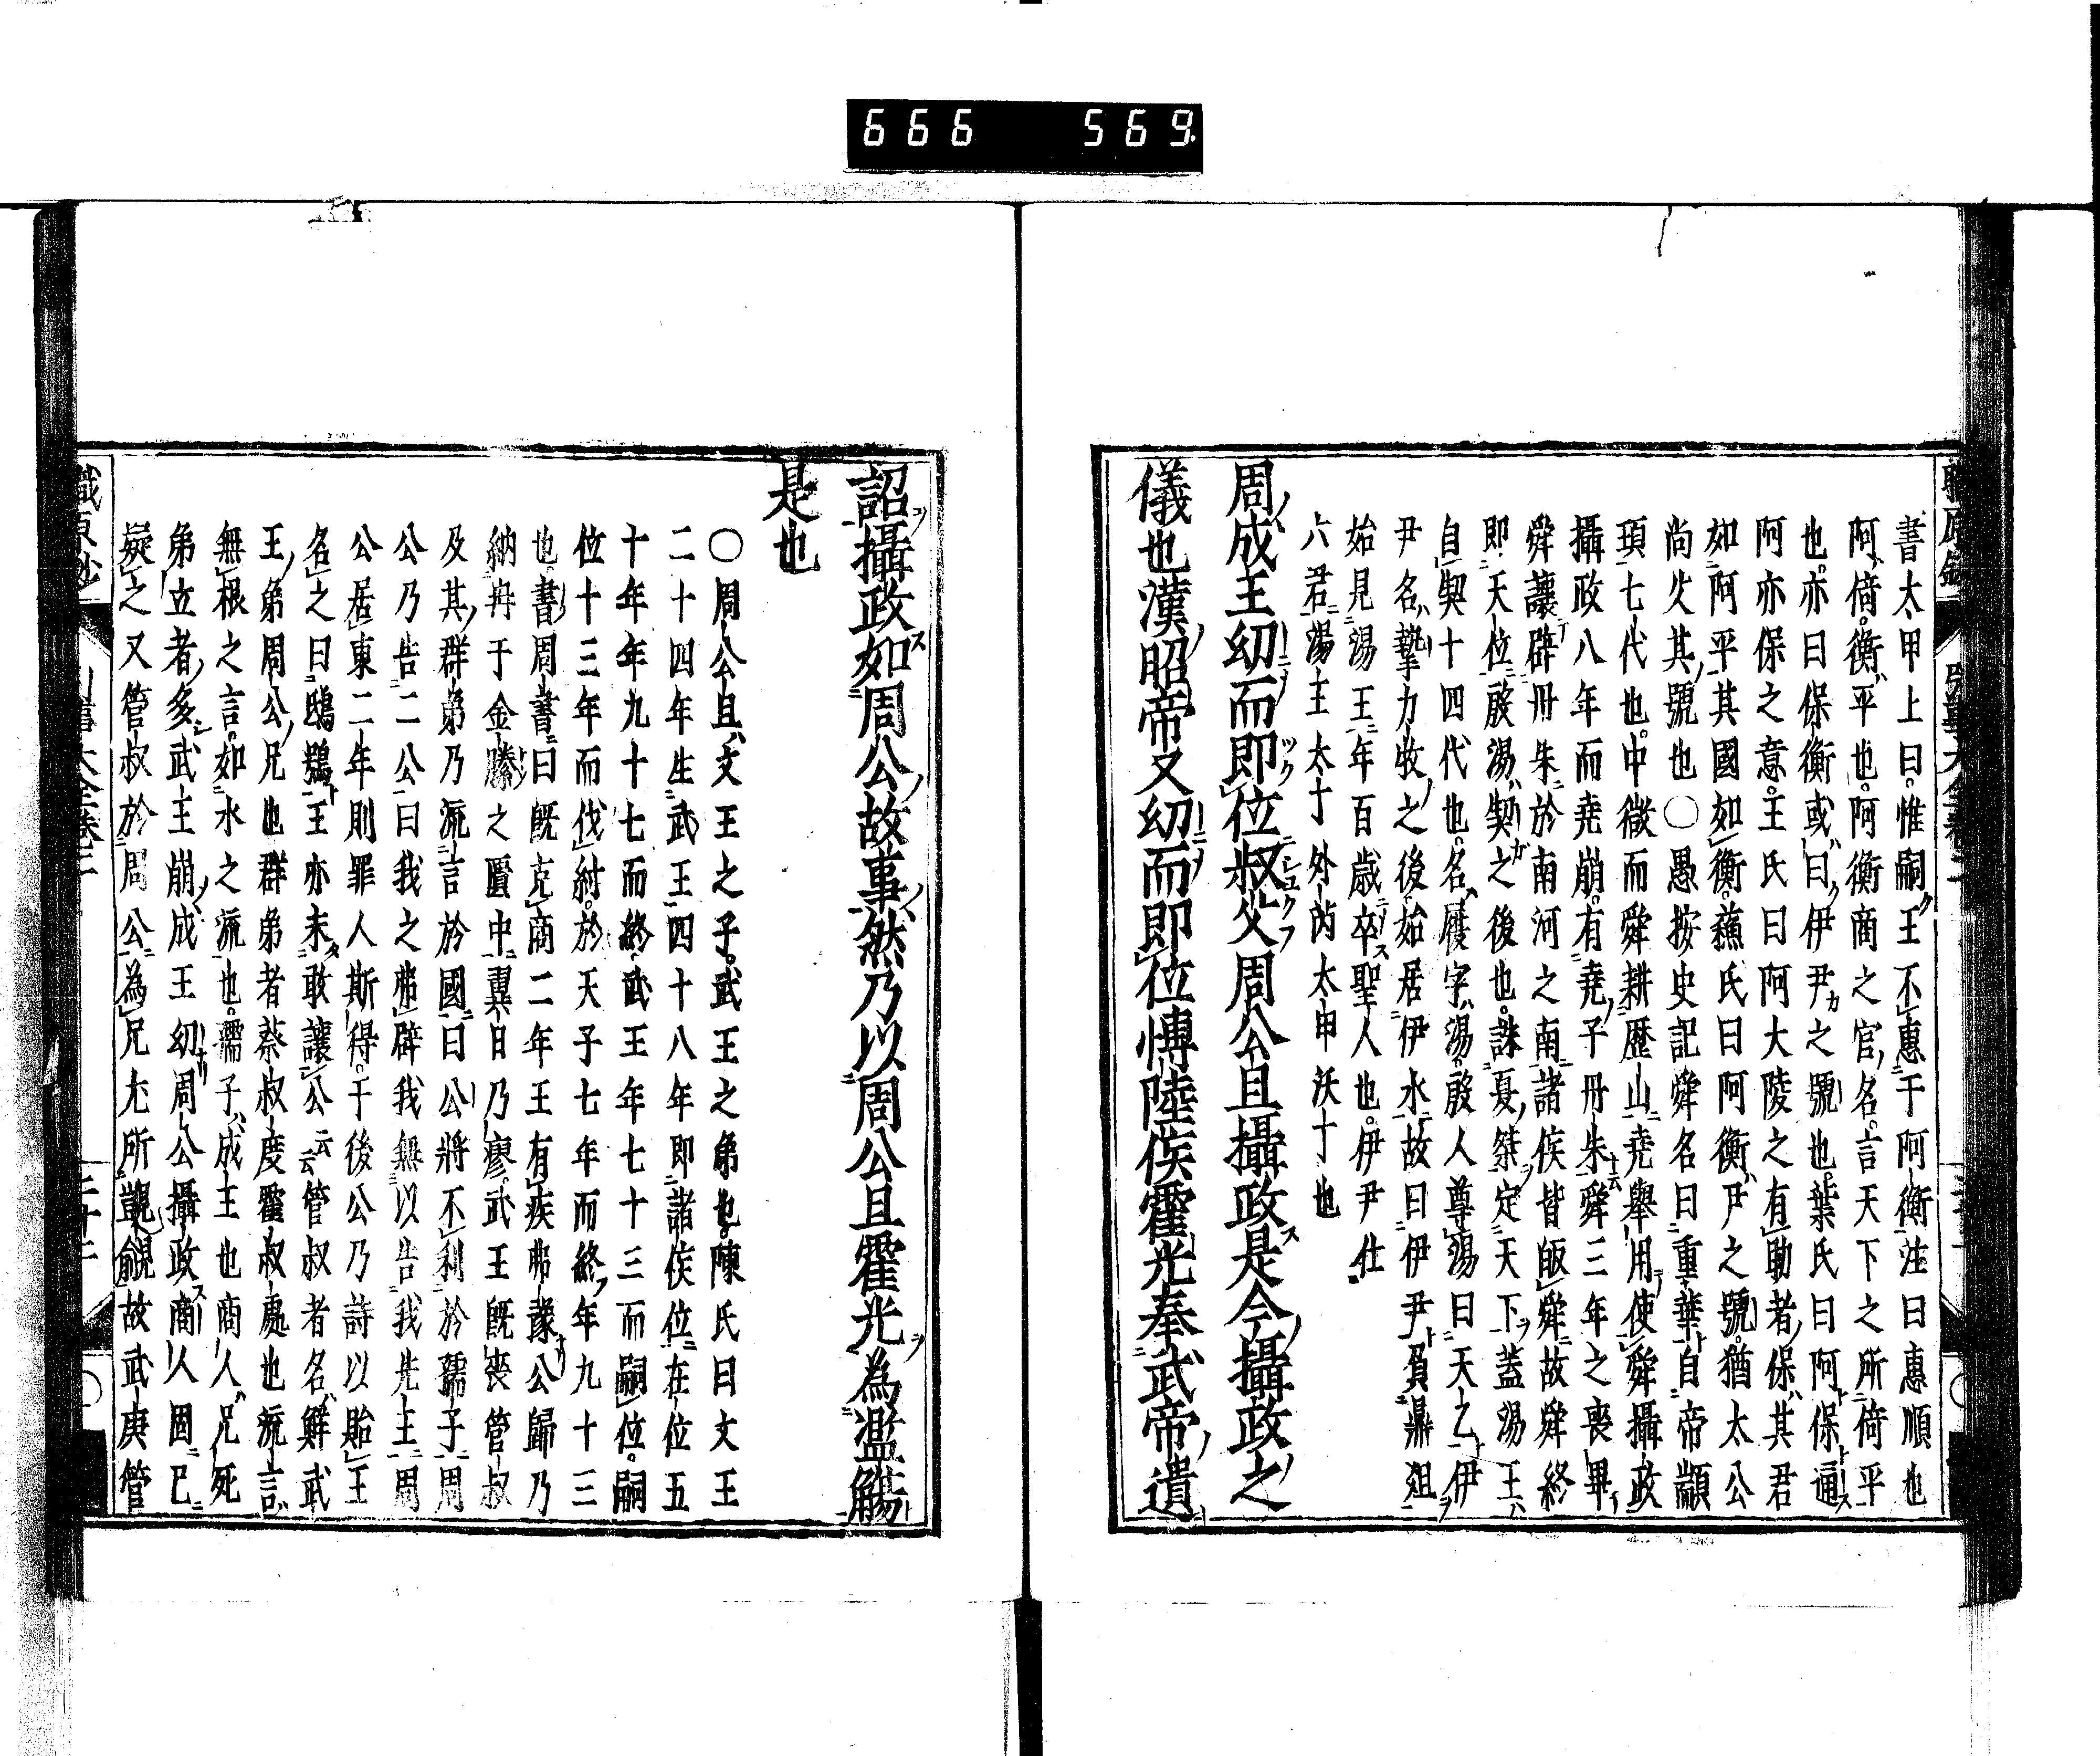 666 569
書太甲上曰惟嗣王不惠于阿衡注曰惠順也
阿倚衡平也阿衡商之官名言天下之所倚平
也亦曰保衡或曰伊尹之號也葉氏曰阿保逼
阿亦保之意王氏曰阿大陵之有助者保其君
如阿平其國如衡蘓氏曰阿衡尸之號猶太公
尚父其號也〇愚按史記舜名曰重華自帝顓
頊七代也中徴而舜耕歴山堯舉用使舜攝政
攝政八年而堯崩有堯子丹朱舜三年之喪畢
舜讓辟丹朱於南河之南諸侯皆皈舜故舜終
即天位殷湯契之後也誅夏桀定天下蓋湯王
自契十四代也名履字湯殷人尊湯曰天乙伊
尹名摯力牧之後始居伊水故曰伊尹負鼎俎
始見湯王年百歳卒聖人也伊尹仕
六君湯王太丁外丙太甲沃丁也
周成王幼而即位叔父周公且攝政是今攝政之
儀也漢昭帝又幼而即位博陸侯霍光奉武帝遺
詔攝政如周公故事然乃以周公且霍光為濫觴
是也
〇周公且文王之子武王之弟也陳氏曰文王
二十四年生武王四十八年即諸侯位在位五
十年年九十七而終武王年七十三而嗣位嗣
位十三年而伐紂於天子七年而終年九十三
也書周書曰既克商二年王有疾弗豫公歸乃
納冊于金縢之匱中翼日乃瘳武王既喪管叔
及其群弟乃流言於國曰公將不利於孺子周
公乃告二公曰我之弗辟我無以告我先王周
公居東二年則罪人斯得于後公乃詩以貽王
名之曰鴟鴞王亦未敢讓公云云管叔者名鮮武
王弟周公兄也群弟者蔡叔度霍叔處也流言
無根之言如水之流也孺子成王也商人兄死
弟立者多武王崩成王幼周公攝政商人固已
疑之又管叔於周公為兄尤所覬覦故武庚管